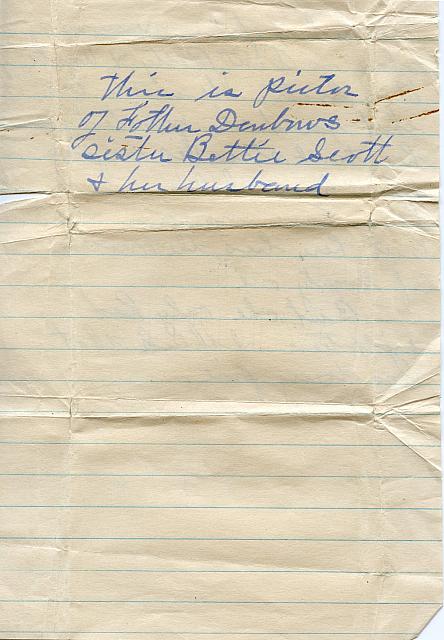 this is pictor
of Father Denbows
sister Bettie Scott
& her husband